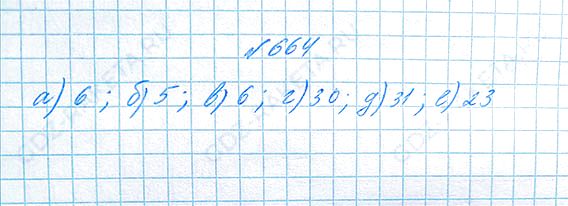 №664
а) 6; б) 5; в) 6; г) 30; д) 31; е) 23